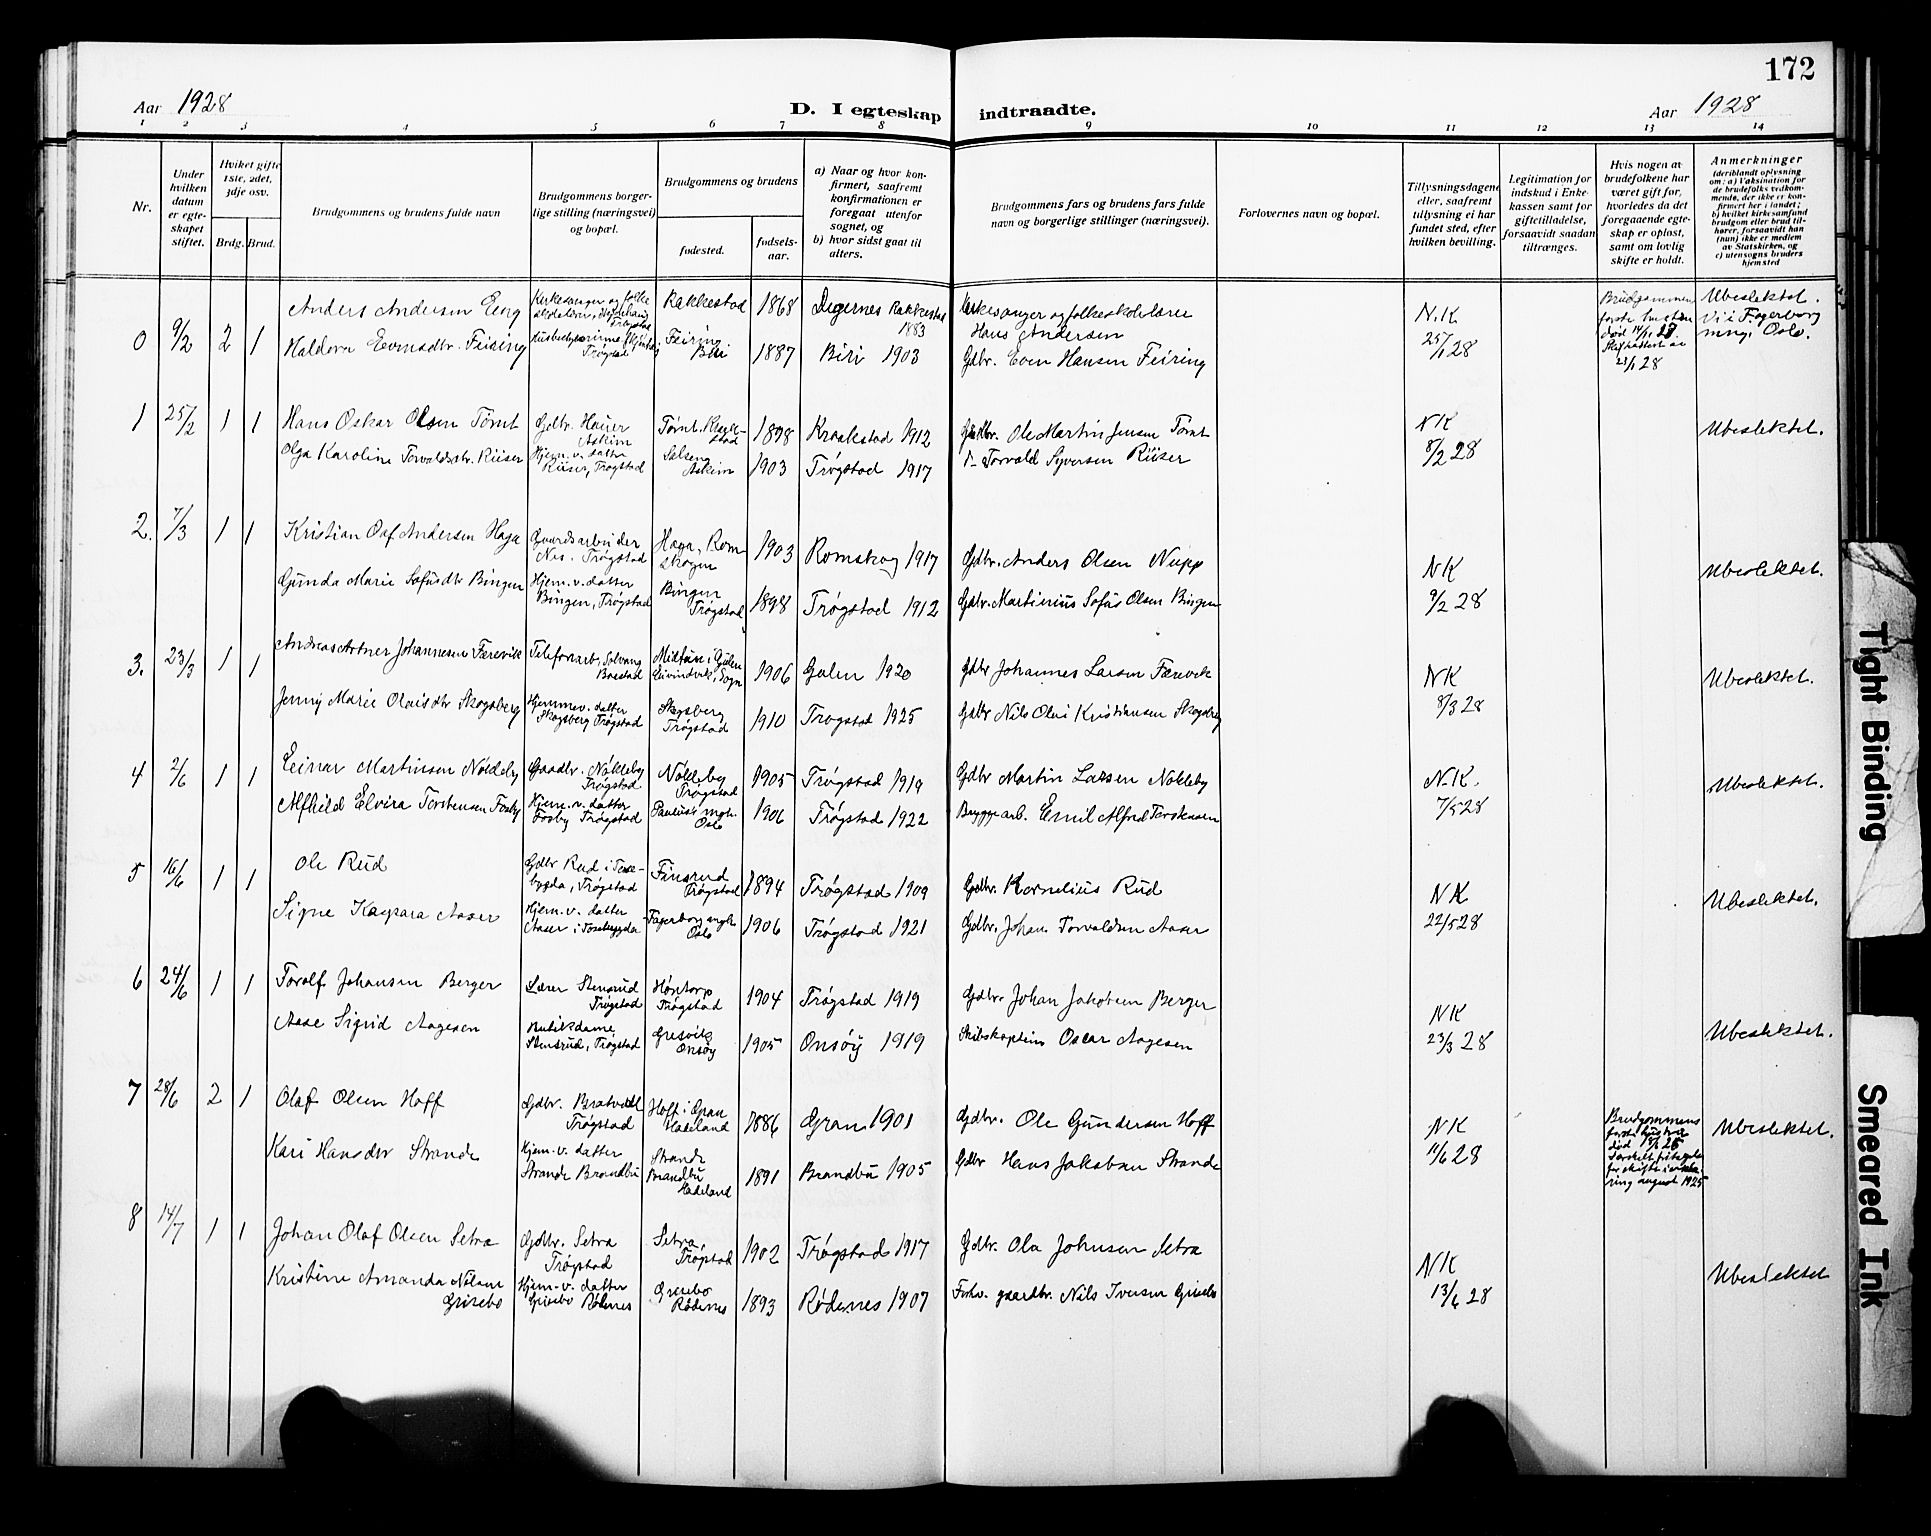 172
Aar 1928
D. I egteskap indtraadte.
Aar 1928
1 2 3 4 5 6 7 8 9 10 11 12 13 14
Nr.
Under hvilken datum er egteskapet stiftet.
Hviket gifte 1ste, 2det, 3dje osv.
Brdg. Brud.
Brudgommens og brudens fulde navn
Brudgommens borgerlige stilling (næringsvei) og bopæl.
Brudgommens og brudens
fødested.
fødselsaar.
a) Naar og hvor konfirmert, saafremt konfirmationen er foregaat utenfor sognet, og
b) hvor sidst gaat til alters.
Brudgommens fars og brudens fars fulde navn og borgerlige stillinger (næringsvei).
Forlovernes navn og bopæl.
Tillysningsdagene eller, saafremt tillysning ei har fundet sted, efter hvilken bevilling.
Legitimation for indskud i Enkekassen samt for giftetilladelse, forsaavidt saadan tiltrænges.
Hvis nogen av brudefolkene har været gift før, hvorledes da det foregaaende egteskap er opløst, samt om lovlig skifte er holdt.
Anmerkninger (deriblandt oplysning om: a) Vaksination for de brudefolks vedkommende, der ikke er konfirmert her i landet; b) hvilket kirkesamfund brudgom eller brud tilhører, forsaavidt han (hun) ikke er medlem av Statskirken, og c) utensogns bruders hjemsted
0 9/2 2 1 Anders Andersen Eeng
Rakkestad 1868 Degernes Rakkestad 1883
Kirkesanger og folkeskolelærer Hans Andersen
N.K 25/1 28
Brudgommens første hustru død
Ubeslektet. Vi i Fagerborg mngh. Oslo.
Haldora Evensdtr. Feiring
Trøgstad
Feiring Biri 1887 Biri 1903
Gdbr. Even Hansen Feiring
1 25/2 1 1 Hans Oskar Olsen Tømt
Gdbr. Haier Askim
Tømt. 1898 Kraakstad 1912
Gdbr. Ole Martin Jensen Tømt
NK 8/2 28
Ubeslektet.
Olga Karoline Torvaldsdtr. Riiser
Hjem. v. datter Riiser, Trøgstad
Askim 1903 Trøgstad 1917
Torvald Syversen Riiser
2. 7/3 1 1 Kristian Olaf Andersen Haga
Gaardsarbeider Nes. Trøgstad
Haga, Romskogen 1903 Romskog 1917
Gdbr. Anders Olsen Nupp
NK 9/2 28
Ubeslektet.
Gunda Marie Sofusdtr Bingen
Hjem. v. datter Bingen, Trøgstad
Bingen Trøgstad 1898 Trøgstad 1912
Gdbr. Martinius Sofus Olsen Bingen
3. 23/3 1 1 Andreas Artner Johannesen Færevik
Telefonarb., Solvang Baastad
Eivindvik, Sogn 1906 Gulen 1920
Gdbr Johannes Larsen Færevik
NK 8/3 28
Ubeslektet.
Jenny Marie Olausdtr Skogsberg
Hjemmev. datter Skogsberg Trøgstad
Skogsberg Trøgstad 1910 Trøgstad 1925
Gdbr Nils Olai Kristiansen Skogsberg
4 2/6 1 1 Einar Martinsen Nøkleby
Gaardbr. Nøkleby Trøgstad
Nøkleby Trøgstad 1905 Trøgstad 1919
Gdbr Martin Larsen Nøkleby
N.K. 7/5 28
Ubeslektet.
Alfhild Elvira Torstensen Fosby
Hjem. v. datter Fosby Trøgstad
Paulus's mgh. Oslo 1906 Trøgstad 1922
Bryggearb. Emil Alfred Torstensen
5 16/6 1 1 Ole Rud
Gdbr Rud i Tosebygda, Trøgstad
Finsrud Trøgstad 1894 Trøgstad 1909
Gdbr. Kornelius Rud
NK 22/5 28
Ubeslektet.
Signe Kaspara Aaser
Hjem. v. datter Aaser i Tosebygda
Fagerborg mgh Oslo 1906 Trøgstad 1921
Gdbr. Johan Torvaldsen Aaser
6 24/6 1 1 Torolf Johansen Berger
Lærer Stensrud Trøgstad
Høntorp Trøgstad 1904 Trøgstad 1919
Gdbr. Johan Jakobsen Berger
NK 23/3 28
Ubeslektet.
Aase Sigrid Aagesen
Butikdame Stensrud, Trøgstad
Gresvik Onsøy 1905 Onsøy 1919
Skibskaptein Oscar Aagesen
7 28/6 2 1 Olaf Olsen Hoff
Gdbr. Bratvedt Trøgstad
Hoff i Gran Hadeland 1886 Gran 1901
Gdbr. Ole Gundersen Hoff
NK 11/6 28
Brudgommens første hustru død august 1925
Ubeslektet.
Kari Hansdtr Strande
Hjem. v. datter Strande Brandbu
Strande Brandbu Hadeland 1891 Brandbu 1905
Gdbr Hans Jakobsen Strande
8 14/7 1 1 Johan Olaf Olsen Setra
Gdbr. Setra Trøgstad
Setra, Trøgstad 1902 Trøgstad 1917
Gdbr. Ole Johnsen Setra
NK 13/6 28
Ubeslektet
Kristine Amanda Nilsen Grisebo
Hjem. v. datter Grisebo Rødenes
Grisebo Rødenes 1893 Rødenes 1907
Forhv. gaardbr. Nils Iversen Grisebo
Tight Binding
Smeared Ink